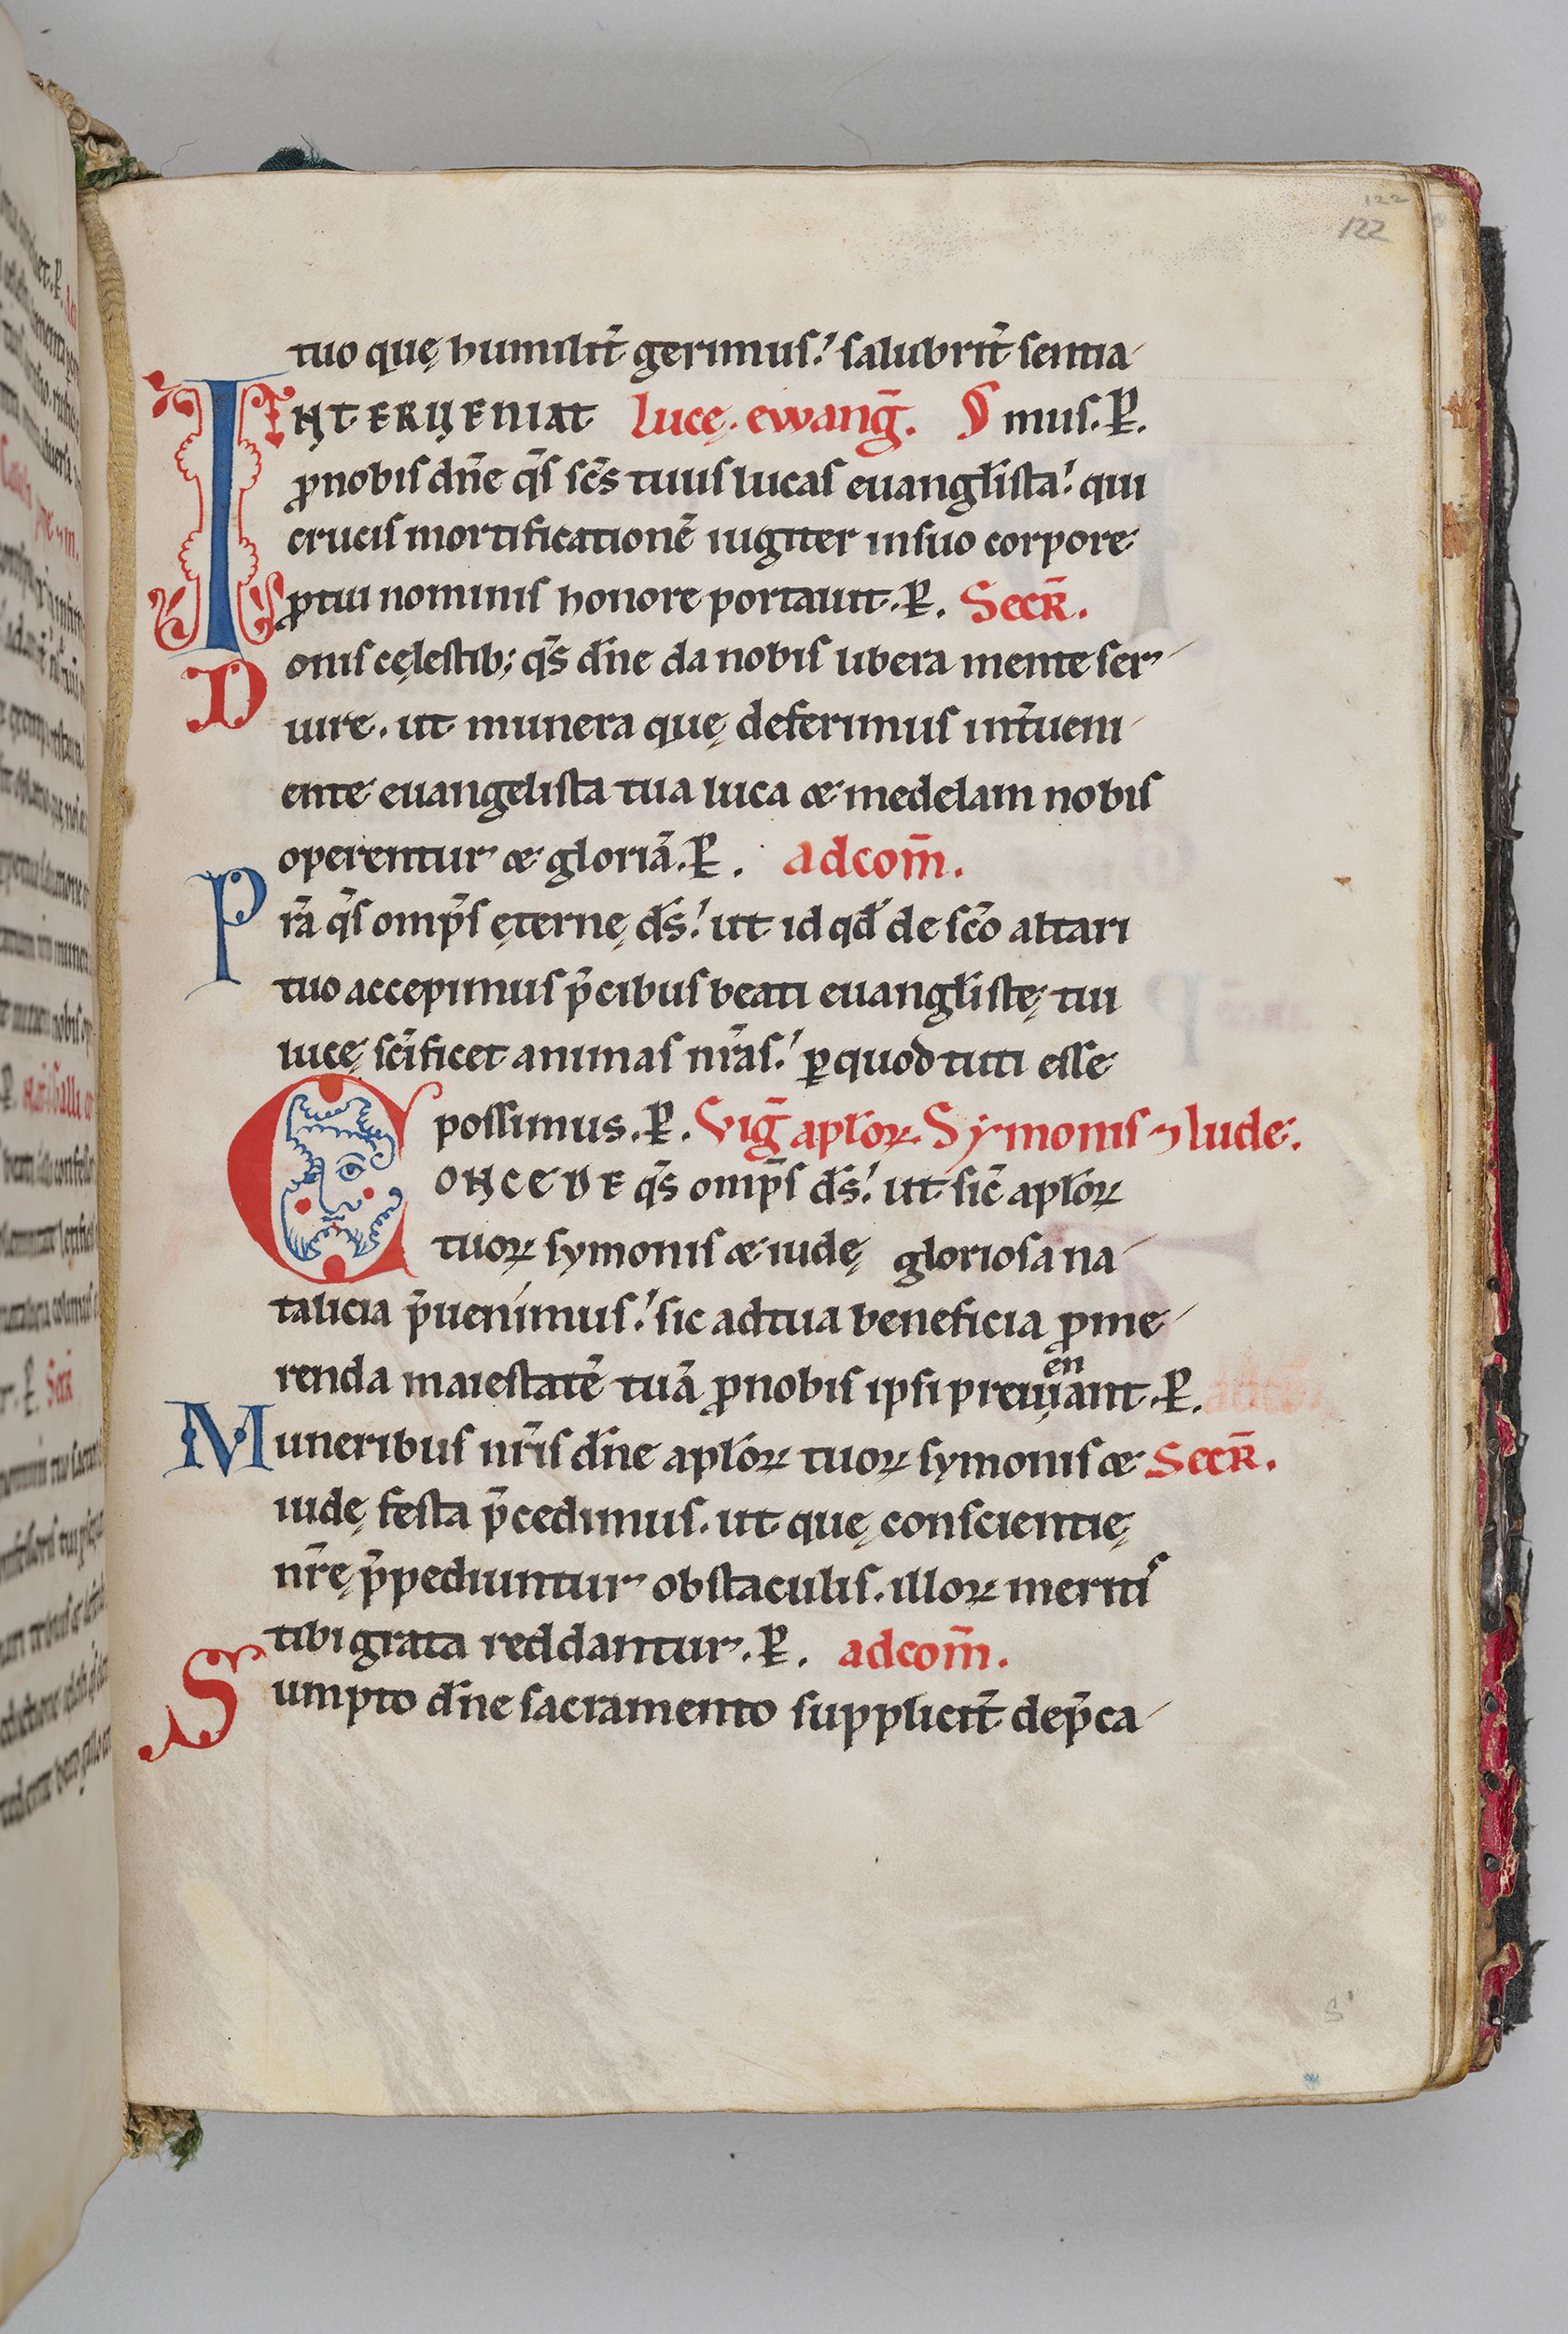 122
122
tuo quę humilit̄ gerimus. salubrit̄ sentia
INTERUENIAT Lucę. ewanḡ. mus. P̱.
ꝓnobis dn̄e q̄s sc̄s tuus lucas euangl̄ista. qui
crucis mortificationē iugiter insuo corpore
ꝓtui nominis honore portauit. P̱. Secr̄.
Donis cęlestib; q̄s dn̄e da nobis libera mente ser
uire. ut munera quę deferimus int̄ueni
ente euangelista tua luca æ medelam nobis
operentur æ gloriā. P̱. adcom̄.
Pr̄a q̄s omp̄s ęternę ds̄. ut id qd̄ de sc̄o altari
tuo accepimus p̄cibus beati euangl̄istę tui
lucę sc̄ificet animas nr̄as. ꝑquod tuti esse
possimus. P̱. Viḡ apl̄oꝝ. Symonis ⁊ Iude.
CONCEDE q̄s omp̄s ds̄. ut sic̄ apl̄oꝝ
tuoꝝ symonis æ iudę gloriosa na
talicia p̄uenimus. sic adtua beneficia ꝓme
renda maiestatē tuā ꝓnobis ipsi preuen̄iant. P̱.
Muneribus nr̄is dn̄e apl̄oꝝ tuoꝝ symonis æ Secr̄.
iudę festa p̄cedimus. ut quę conscientię
nr̄ę p̄pediuntur obstaculis. illoꝝ meritis
tibi grata reddantur. P̱. adcom̄.
Sumpto dn̄e sacramento supplicit̄ dep̄ca